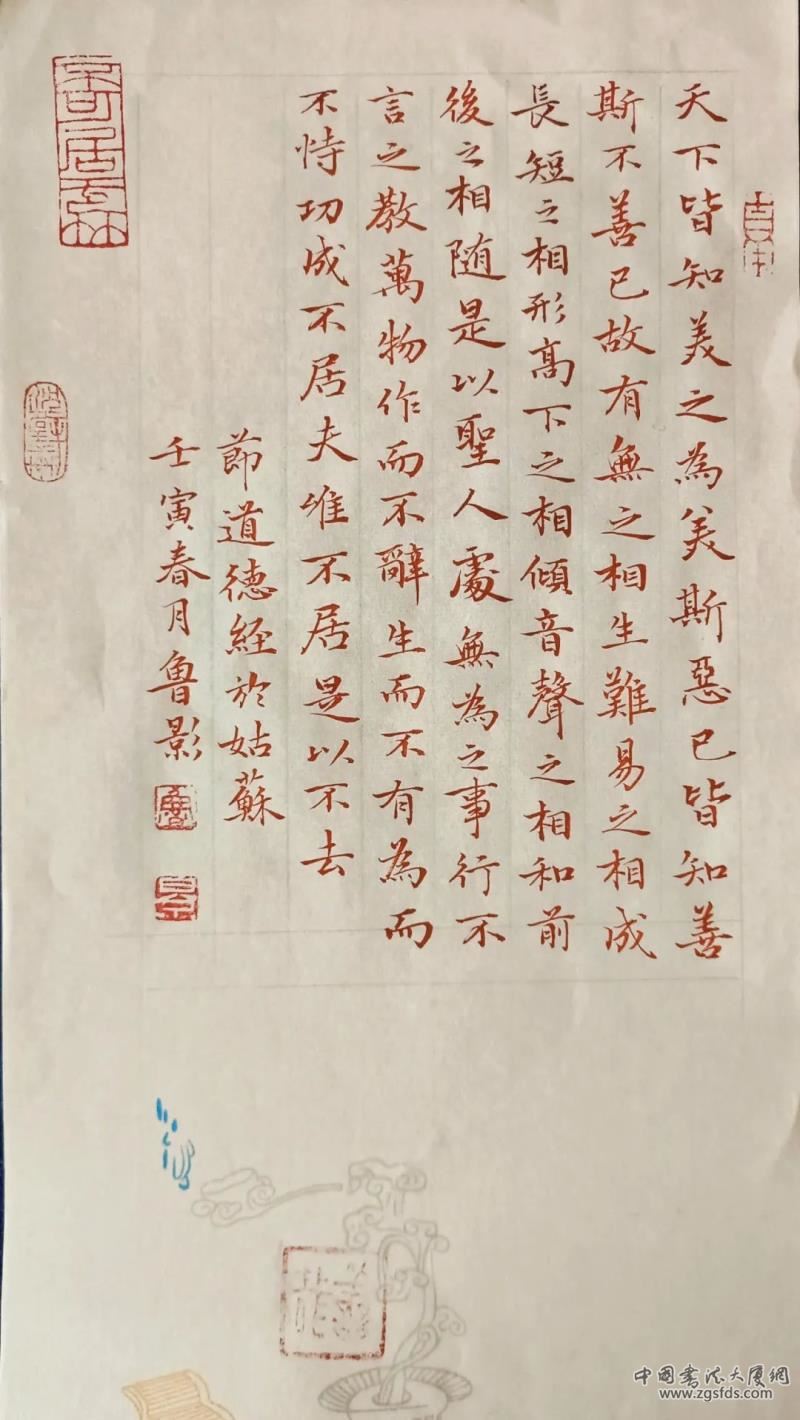 天下皆知美之為美斯惡已皆知善
斯不善已故有無之相生難易之相成
長短之相形髙下之相傾音聲之相和前
後之相随是以聖人處無為之事行不
言之教萬物作而不辭生而不有為而
不恃功成不居夫維不居是以不去
莭道德經於姑蘇
壬寅春月魯影
中國書法大廈網
www.zgsfds.net